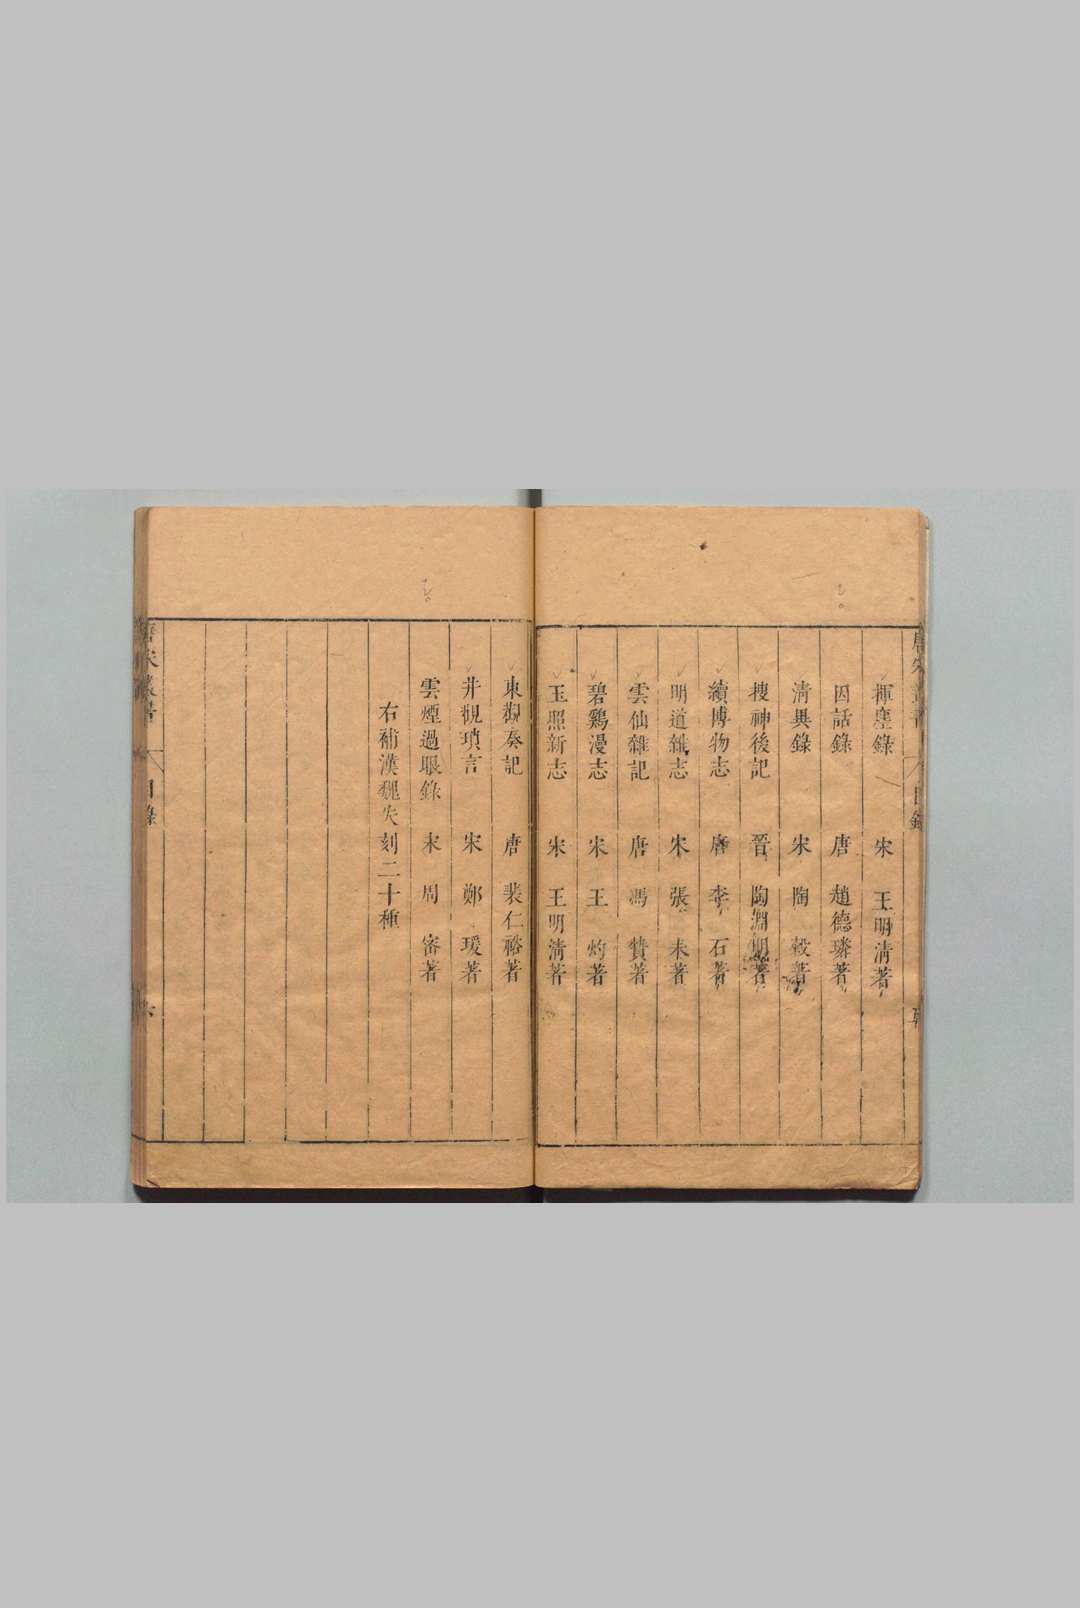 揮麈錄　宋　王明清著
因話錄　唐　趙德璘著
清異錄　宋　陶　穀著
搜神後記　晉　陶淵明著
續博物志　唐　李　石著
明道雜志　宋　張　耒著
雲仙雜記　唐　馮　贄著
碧鷄漫志　宋　王　灼著
玉照新志　宋　王明清著
東觀奏記　唐　裴仁裕著
井觀瑣言　宋　鄭　瑗著
雲煙過眼錄　宋　周　密著
右補漢魏失刻二十種
唐宋叢書　目錄　六